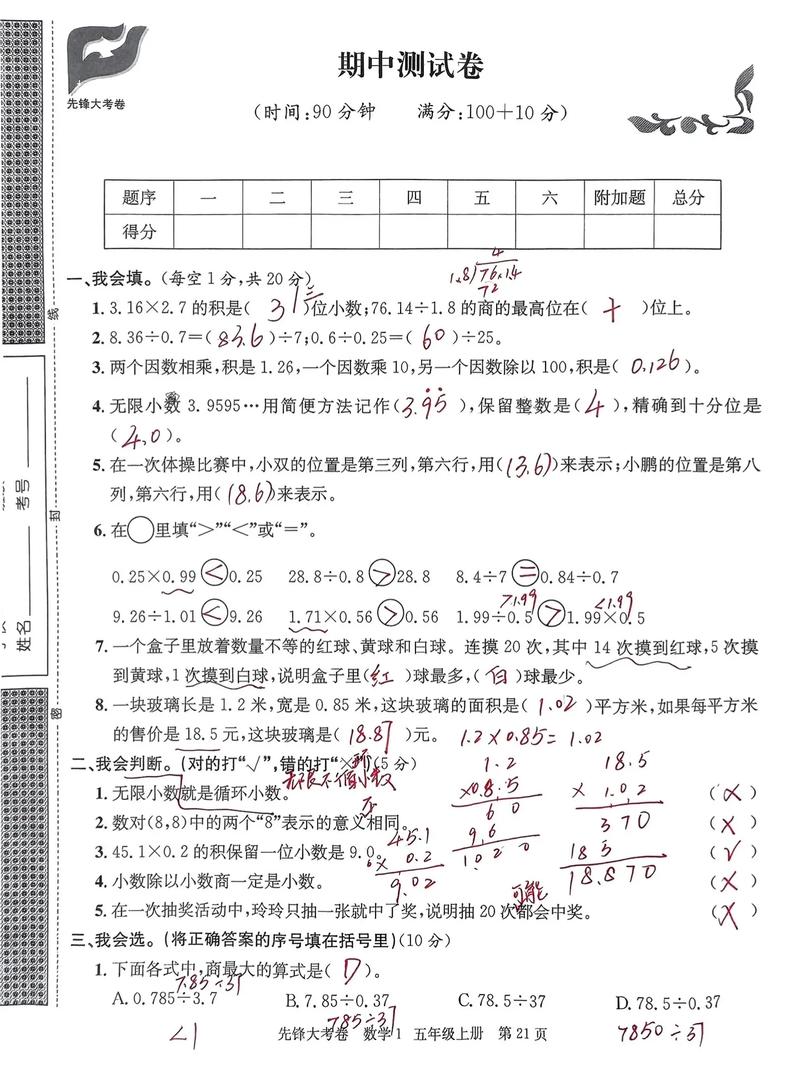 先锋大考卷
期中测试卷
(时间:90分钟 满分:100+10分)
题序 一 二 三 四 五 六 附加题 总分
得分
4
1.8)76.14
72
一、我会填。(每空1分,共20分)
1. 3.16×2.7的积是( 3 三 )位小数;76.14÷1.8的商的最高位在( 十 )位上。
2. 8.36÷0.7=( 83.6 )÷7;0.6÷0.25=( 60 )÷25。
3. 两个因数相乘,积是1.26,一个因数乘10,另一个因数除以100,积是( 0.126 )。
4. 无限小数3.9595…用简便方法记作( 3.9̇5̇ ),保留整数是( 4 ),精确到十分位是
( 4.0 )。
5. 在一次体操比赛中,小双的位置是第三列,第六行,用( (3,6) )来表示;小鹏的位置是第八
列,第六行,用( (8,6) )来表示。
6. 在○里填“>”“<”或“=”。
0.25×0.99 < 0.25 28.8÷0.8 > 28.8 8.4÷7 = 0.84÷0.7
>1.99 <1.99
9.26÷1.01 < 9.26 1.71×0.56 > 0.56 1.99÷0.5 > 1.99×0.5
7. 一个盒子里放着数量不等的红球、黄球和白球。连摸20次,其中14次摸到红球,5次摸
到黄球,1次摸到白球,说明盒子里( 红 )球最多,( 白 )球最少。
8. 一块玻璃长是1.2米,宽是0.85米,这块玻璃的面积是( 1.02 )平方米,如果每平方米
的售价是18.5元,这块玻璃是( 18.87 )元。 1.2×0.85=1.02
二、我会判断。(对的打“√”,错的打“×”)(5分)
1.2 18.5
1. 无限小数就是循环小数。 ×0.85 ×1.02 ( × )
60 370
2. 数对(8,8)中的两个“8”表示的意义相同。 ( × )
45.1 96 185
3. 45.1×0.2的积保留一位小数是9.0。 ×0.2 1020 18.870 ( √ )
9.02
4. 小数除以小数商一定是小数。 ( × )
可能
5. 在一次抽奖活动中,玲玲只抽一张就中了奖,说明抽20次都会中奖。 ( × )
三、我会选。(将正确答案的序号填在括号里)(10分)
1. 下面各式中,商最大的算式是( D )。
7.85÷37
A. 0.785÷3.7 B. 7.85÷0.37 C. 78.5÷37 D. 78.5÷0.37
<1 785÷37 7850÷37
先锋大考卷 数学1 五年级上册 第21页
线
封
密
考号
姓名